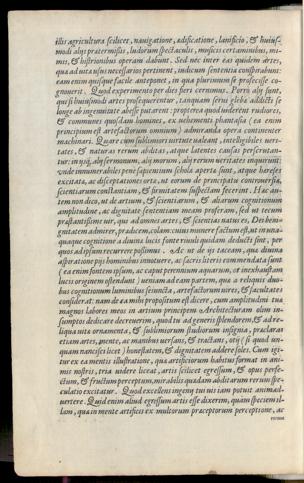 illis agricultura scilicet, nauigatione, ædificatione, lanificio, & huius-
modi alijs prætermissis, ludorum spectaculis, musicis certaminibus, mi-
mis, & histrionibus operam dabunt. Sed nec inter eas quidem artes,
quæ ad uitæ usus necessarios pertinent, iudicium sententia conspirabunt:
eam enim quisque facile anteponet, in qua plurimum se profecisse co-
gnouerit. Quod experimento per dies fieri cernimus. Porrò alij sunt,
qui si huiusmodi artes prosequerentur, tanquam serui glebæ addicti se
longe ab ingenuitate abesse putarent: propterea quod uiderent rudiores,
& communes quosdam homines, ex uehementi phantasia (ea enim
principium est artefactorum omnium) admiranda opera continenter
machinari. Quare cum sublimiori uirtute ualeant, intelligibiles ueri-
tates, & naturas rerum abditas, atque latentes causas perscrutan-
tur: in ijsq; alij sermonum, alij morum, alij rerum ueritates inquirunt:
unde innumerabiles penè sapientum scholæ aperta sunt, atque hæreses
excitatæ, ac disceptationes ortæ, ut eorum de principatu controuersia,
scientiarum constantiam, & firmitatem suspectam fecerint. Hæc au-
tem non dico, ut de artium, & scientiarum, & aliarum cognitionum
amplitudine, ac dignitate sententiam meam proferam, sed ut tecum
præstantissime uir, qui ad omnes artes, & scientias natus es, Dei beni-
gnitatem admirer, prædicem, colam: cuius munere factum est, ut in una-
quaque cognitione à diuinæ lucis fonte riuuli quidam deducti sint, per
quos ad ipsum recurrere possimus. Ac ut de ijs taceam, quæ diuina
aspiratione pijs hominibus innotuere, ac sacris literis commendata sunt
(ea enim fontem ipsum, ac caput perennium aquarum, et inexhaustam
lucis originem ostendunt) ueniam ad eam partem, quæ à reliquis duo-
bus cognitionum luminibus seiuncta, artefactorum uires, & facultates
considerat: nam de ea mihi propositum est dicere, cum amplitudini tuæ
magnos labores meos in artium principem architecturam olim in-
sumptos dedicare decreuerim, quod tu ad generis splendorem, & ad re-
liqua uitæ ornamenta, & sublimiorum studiorum insignia, præclaras
etiam artes, mente, ac manibus uersans, & tractans, otij (si quod un-
quam nancisci licet) honestatem, & dignitatem addere soles. Cum igi-
tur ex tamentis illustratione, qua artificiorum habitus format in ani-
mis nostris, tria uidere liceat, artis scilicet egressum, & opus perfe-
ctum, & fructum perceptum, mirabilis quædam abditarum rerum spe-
culatio excitatur. Quod excellens ingenij tui uis iam potuit animad-
uertere. Quid enim aliud egressum artis esse dixerim, quàm speciem il-
lam, quæ in mente artificis ex multorum præceptorum perceptione, ac